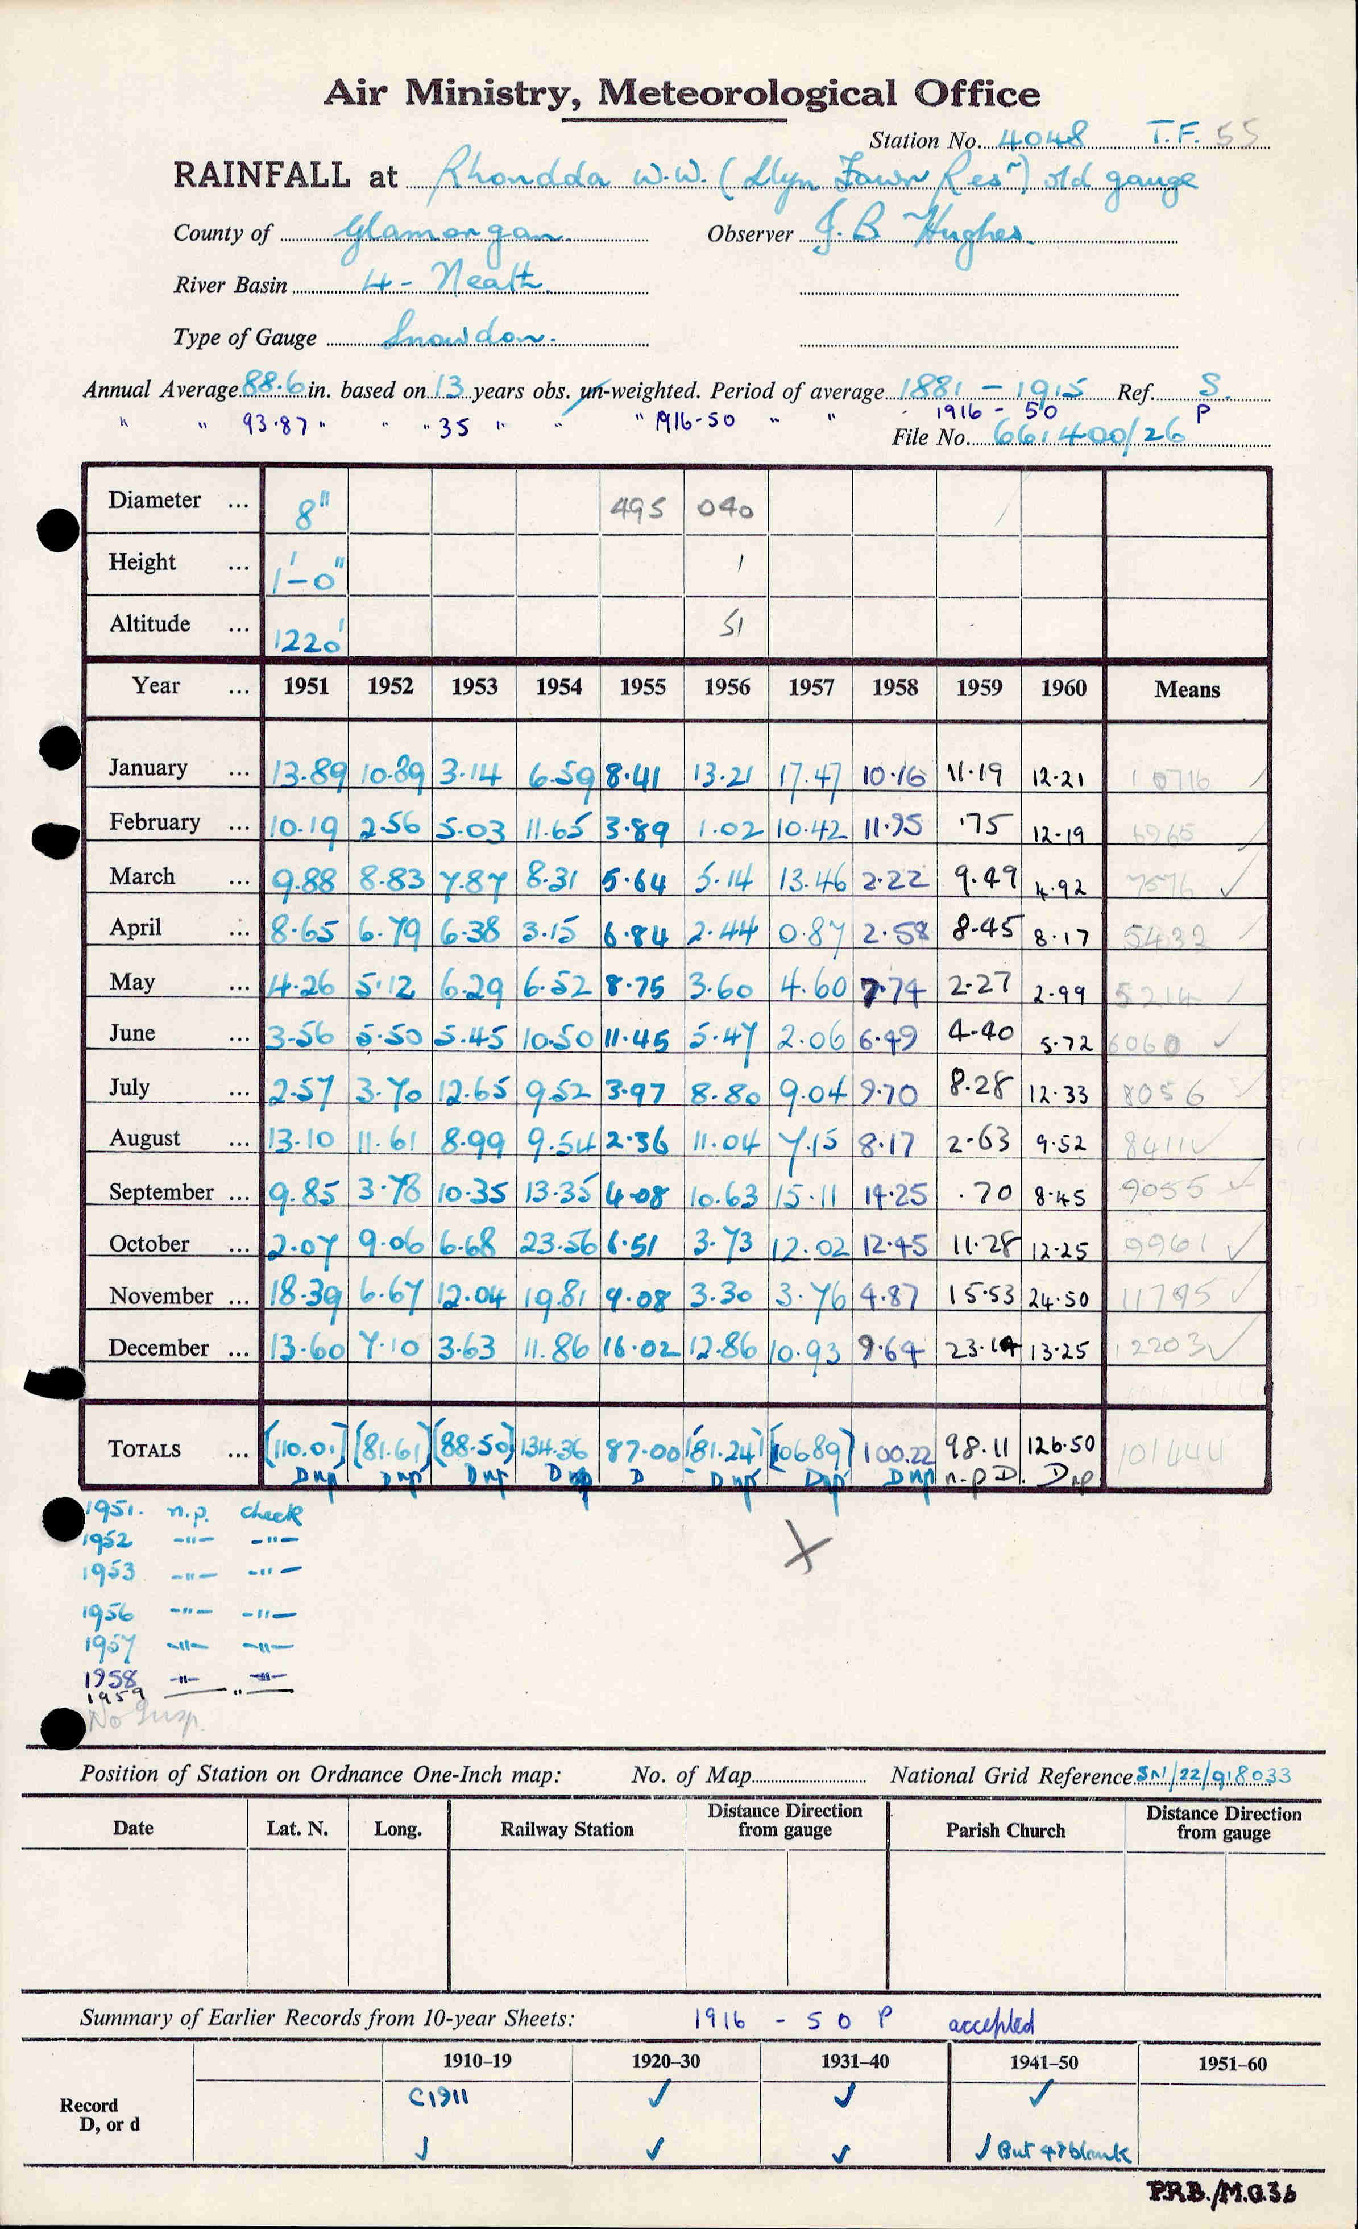 Air Ministry, Meteorological Office
Station No. 4048 T.F. 55
RAINFALL at Rhondda W.W. (Llyn Fawr Resr) old gauge
County of Glamorgan. Observer J. B Hughes.
River Basin 4 - Neath
Type of Gauge Snowdon.
Annual Average 88.6 in. based on 13 years obs. un-weighted. Period of average 1881 - 1915 Ref. S.
" " 93.87 " " " 35 " " " 1916-50 " " 1916 - 50 P
File No. 661400/26
Diameter ... 8" 495 040
Height ... 1'-0" 1
Altitude ... 1220' 51
Year ... 1951 1952 1953 1954 1955 1956 1957 1958 1959 1960 Means
January ... 13.89 10.89 3.14 6.59 8.41 13.21 17.47 10.16 11.19 12.21 10716
February ... 10.19 2.56 5.03 11.65 3.89 1.02 10.42 11.95 .75 12.19 6965
March ... 9.88 8.83 7.87 8.31 5.64 5.14 13.46 2.22 9.49 4.92 7576 ✓
April ... 8.65 6.79 6.38 3.15 6.84 2.44 0.87 2.58 8.45 8.17 5432
May ... 4.26 5.12 6.29 6.52 8.75 3.60 4.60 7.74 2.27 2.99 5214
June ... 3.56 5.50 5.45 10.50 11.45 5.47 2.06 6.49 4.40 5.72 6060 ✓
July ... 2.57 3.70 12.65 9.52 3.97 8.80 9.04 9.70 8.28 12.33 8056 ✓
August ... 13.10 11.61 8.99 9.54 2.36 11.04 7.15 8.17 2.63 9.52 8411 ✓
September ... 9.85 3.78 10.35 13.35 4.08 10.63 15.11 14.25 .70 8.45 9055 ✓
October ... 2.07 9.06 6.68 23.56 6.51 3.73 12.02 12.45 11.28 12.25 9961 ✓
November ... 18.39 6.67 12.04 19.81 9.08 3.30 3.76 4.87 15.53 24.50 11795 ✓
December ... 13.60 7.10 3.63 11.86 16.02 12.86 10.93 9.64 23.14 13.25 12203 ✓
TOTALS ... [110.01] [81.61] [88.50] 134.36 87.00 [81.24] [106.89] 100.22 98.11 126.50 101444
Dnp Dnp Dnp Dnp D Dnp Dnp Dnp n.p D. Dnp
1951. n.p. check
1952 -"- -"-
1953 -"- -"-
1956 -"- -"-
1957 -"- -"-
1958 -"- -"-
1959 - " -
No Insp.
Position of Station on Ordnance One-Inch map: No. of Map National Grid Reference SN/22/918033
Date Lat. N. Long. Railway Station Distance Direction from gauge Parish Church Distance Direction from gauge
Summary of Earlier Records from 10-year Sheets: 1916 - 50 P accepted
1910–19 1920–30 1931–40 1941–50 1951–60
Record C1911 ✓ ✓ ✓
D, or d ✓ ✓ ✓ ✓ But 48 blank
P.R.B./M.O.36